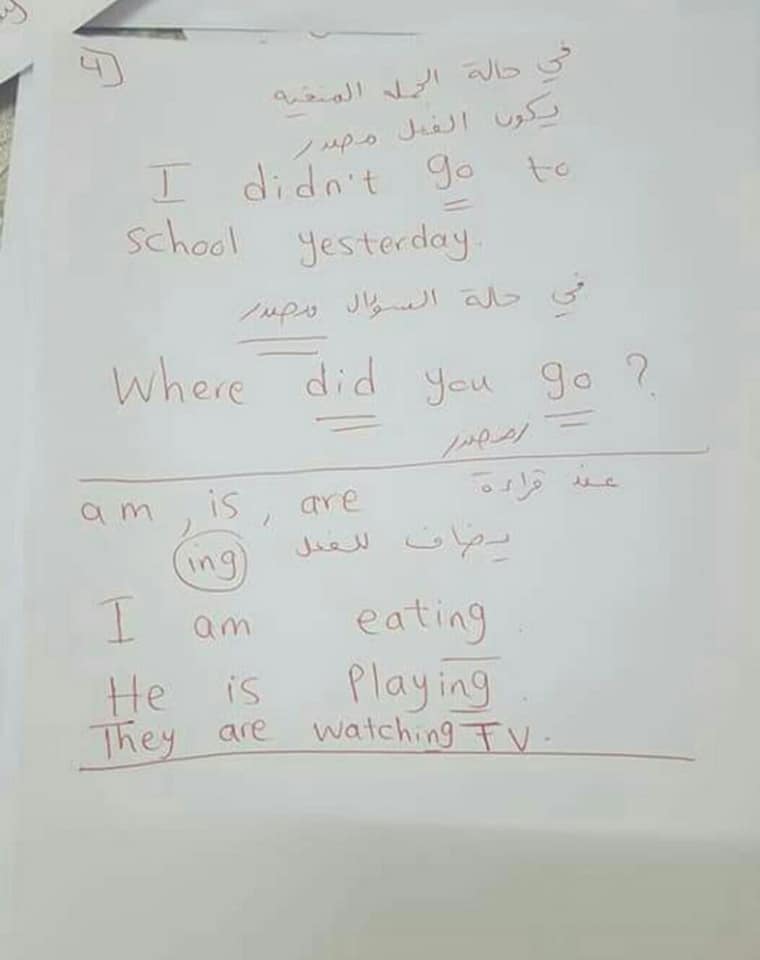 4]
في حالة الجمله المنفيه
يكون الفعل مصدر
I didn't go to
school yesterday.
في حالة السؤال مصدر
Where did you go ?
مصدر
am , is , are عند قراءة
يضاف للفعل ing
I am eating .
He is Playing .
They are watching TV.